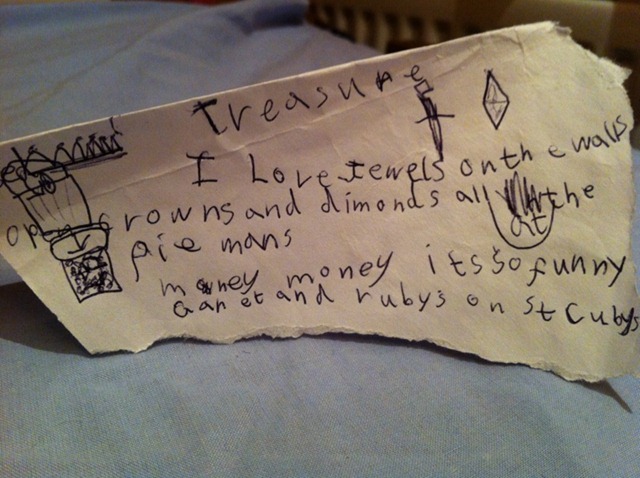 treasure
I Love jewels on the walls
crowns and dimonds all at the
pie mans
money money its so funny
Ganet and rubys on st cubys